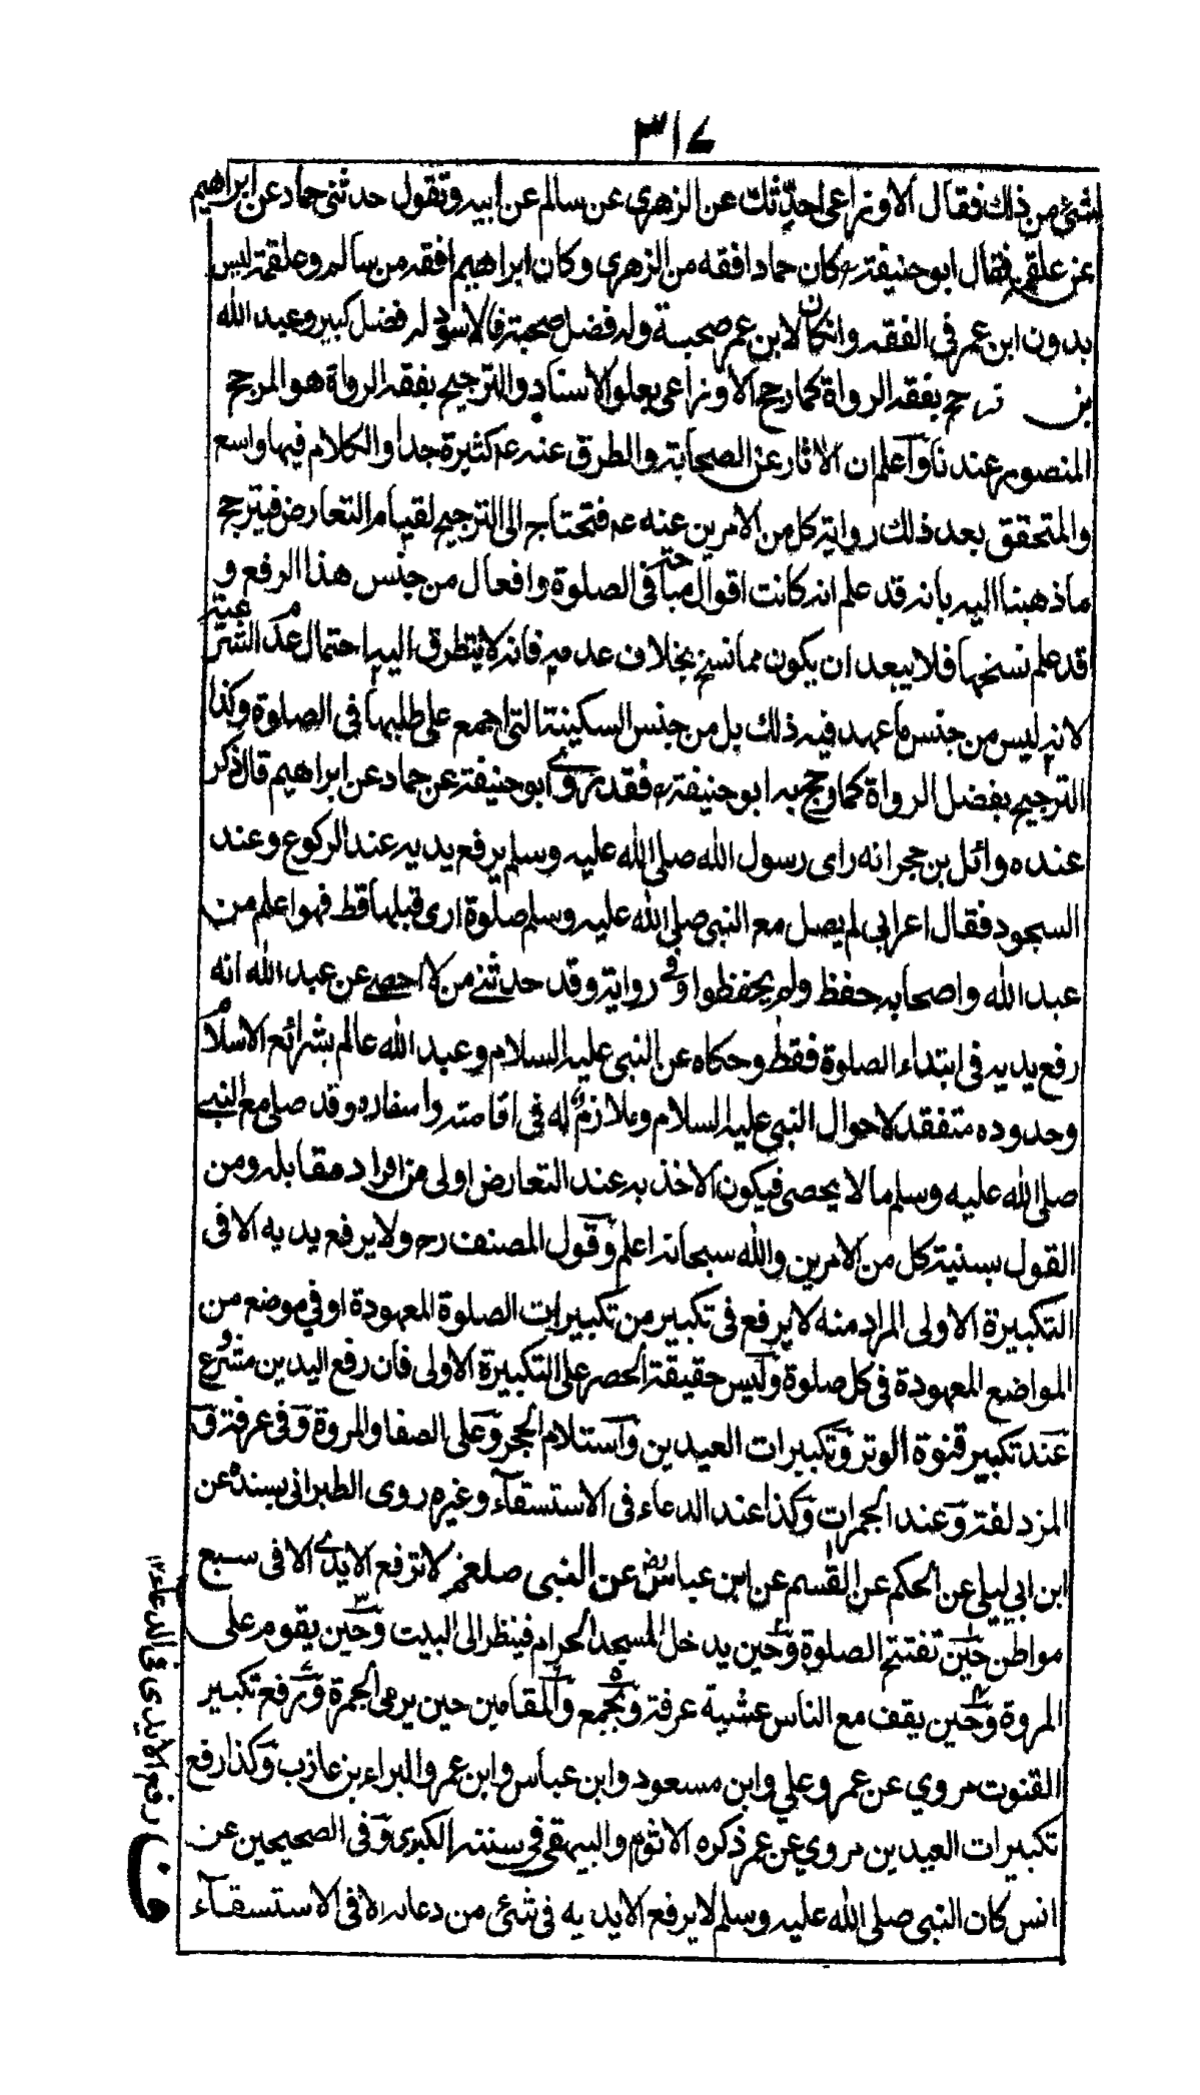 ٣١٧
لشئ من ذلك فقال الاوزاعي احدّثك عن الزهري عن سالم عن ابيه وتقول حدثنى حماد عن ابراهيم
عن علقمة فقال ابو حنيفة رح كان حماد افقه من الزهرى وكان ابراهيم افقه من سالم وعلقمة ليس
بدون ابن عمر فى الفقه وانكان لابن عمر صحبة وله فضل صحبة فالاسود له فضل كبير وعبد الله
رجح بفقه الرواة كما رجح الاوزاعى بعلو الاسناد والترجيح بفقه الرواة هو المرجح
المنصور عندنا وآعلم ان الاثار عن الصحابة والطرق عنه عم كثيرة جدا والكلام فيها واسع
والمتحقق بعد ذلك رواية كل من الامرين عنه عم فتحتاج الى الترجيح لقيام التعارض فيترجح
ما ذهبنا اليه بانه قد علم انه كانت اقوال مباحة فى الصلوة وافعال من جنس هذا الرفع و
قد علم نسخها فلا يبعد ان يكون مما نسخ بخلاف عدمه فانه لا يتطرق اليه احتمال عدم الشرعية
لانه ليس من جنس ما عهد فيه ذلك بل من جنس السكينة التى اجمع على طلبها فى الصلوة وكذا
الترجيح بفضل الرواة كما رجح به ابو حنيفة رح فقد روى ابو حنيفة عن حماد عن ابراهيم قال ذكر
عنده وائل بن حجر انه راى رسول الله صلى الله عليه وسلم يرفع يديه عند الركوع وعند
السجود فقال اعرابى لم يصل مع النبى صلى الله عليه وسلم صلوة ارى قبلها قط فهو اعلم من
عبد الله واصحابه حفظ ولم يحفظوا وفى رواية وقد حدثنى من لا احصى عن عبد الله انه
رفع يديه فى ابتداء الصلوة فقط وحكاه عن النبى عليه السلام وعبد الله عالم بشرائع الاسلام
وحدوده متفقد لاحوال النبى عليه السلام وملازم له فى اقامته واسفاره وقد صلى مع النبى
صلى الله عليه وسلم ما لا يحصى فيكون الاخذ به عند التعارض اولى من افراد مقابله ومن
القول بسنية كل من الامرين والله سبحانه اعلم وقول المصنف رح ولا يرفع يديه الا فى
التكبيرة الاولى المراد منه لا يرفع فى تكبير من تكبيرات الصلوة المعهودة او فى موضع من
المواضع المعهودة فى كل صلوة وليس حقيقة الحصر على التكبيرة الاولى فان رفع اليدين مشروع
عند تكبير قنوة الوتر وتكبيرات العيدين وآستلام الحجر وعلى الصفا والمروة وفى عرفة و
المزدلفة وعند الجمرات وكذا عند الدعاء فى الاستسقآء وغيره روى الطبرانى بسنده عن
ابن ابى ليلى عن الحكم عن القسم عن ابن عباس رض عن النبى صلعم لا ترفع الايدى الا فى سبع
مواطن حين تفتتح الصلوة وحين يدخل المسجد الحرام فينظر الى البيت وحين يقوم على
المروة وحين يقف مع الناس عشية عرفة وبجمع والمقامين حين يرمى الجمرة ورفع تكبير
القنوت مروي عن عمر وعلي وابن مسعود وابن عباس وابن عمر والبراء بن عازب وكذا رفع
تكبيرات العيدين مروي عن عمر ذكره الاثرم والبيهقى فى سننه الكبرى وفى الصحيحين عن
انس كان النبى صلى الله عليه وسلم لا يرفع الايديه فى شئ من دعائه الا فى الاستسقآء
ف رفع الايدى فى الدعاء ١٢